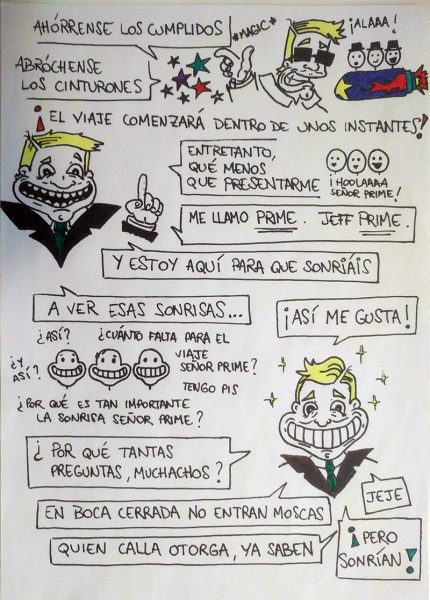 AHÓRRENSE LOS CUMPLIDOS
*MAGIC*
¡ALAAA!
ABRÓCHENSE
LOS CINTURONES
¡EL VIAJE COMENZARÁ DENTRO DE UNOS INSTANTES!
ENTRETANTO,
QUÉ MENOS
QUE PRESENTARME
¡HOOLAAAA
SEÑOR PRIME!
ME LLAMO PRIME. JEFF PRIME.
Y ESTOY AQUÍ PARA QUE SONRIÁIS
A VER ESAS SONRISAS...
¡ASÍ ME GUSTA!
¿ASÍ?
¿Y
ASÍ?
¿CUÁNTO FALTA PARA EL
VIAJE
SEÑOR PRIME?
TENGO PIS
¿POR QUÉ ES TAN IMPORTANTE
LA SONRISA SEÑOR PRIME?
¿POR QUÉ TANTAS
PREGUNTAS, MUCHACHOS?
JEJE
EN BOCA CERRADA NO ENTRAN MOSCAS
QUIEN CALLA OTORGA, YA SABEN
¡PERO
SONRÍAN!